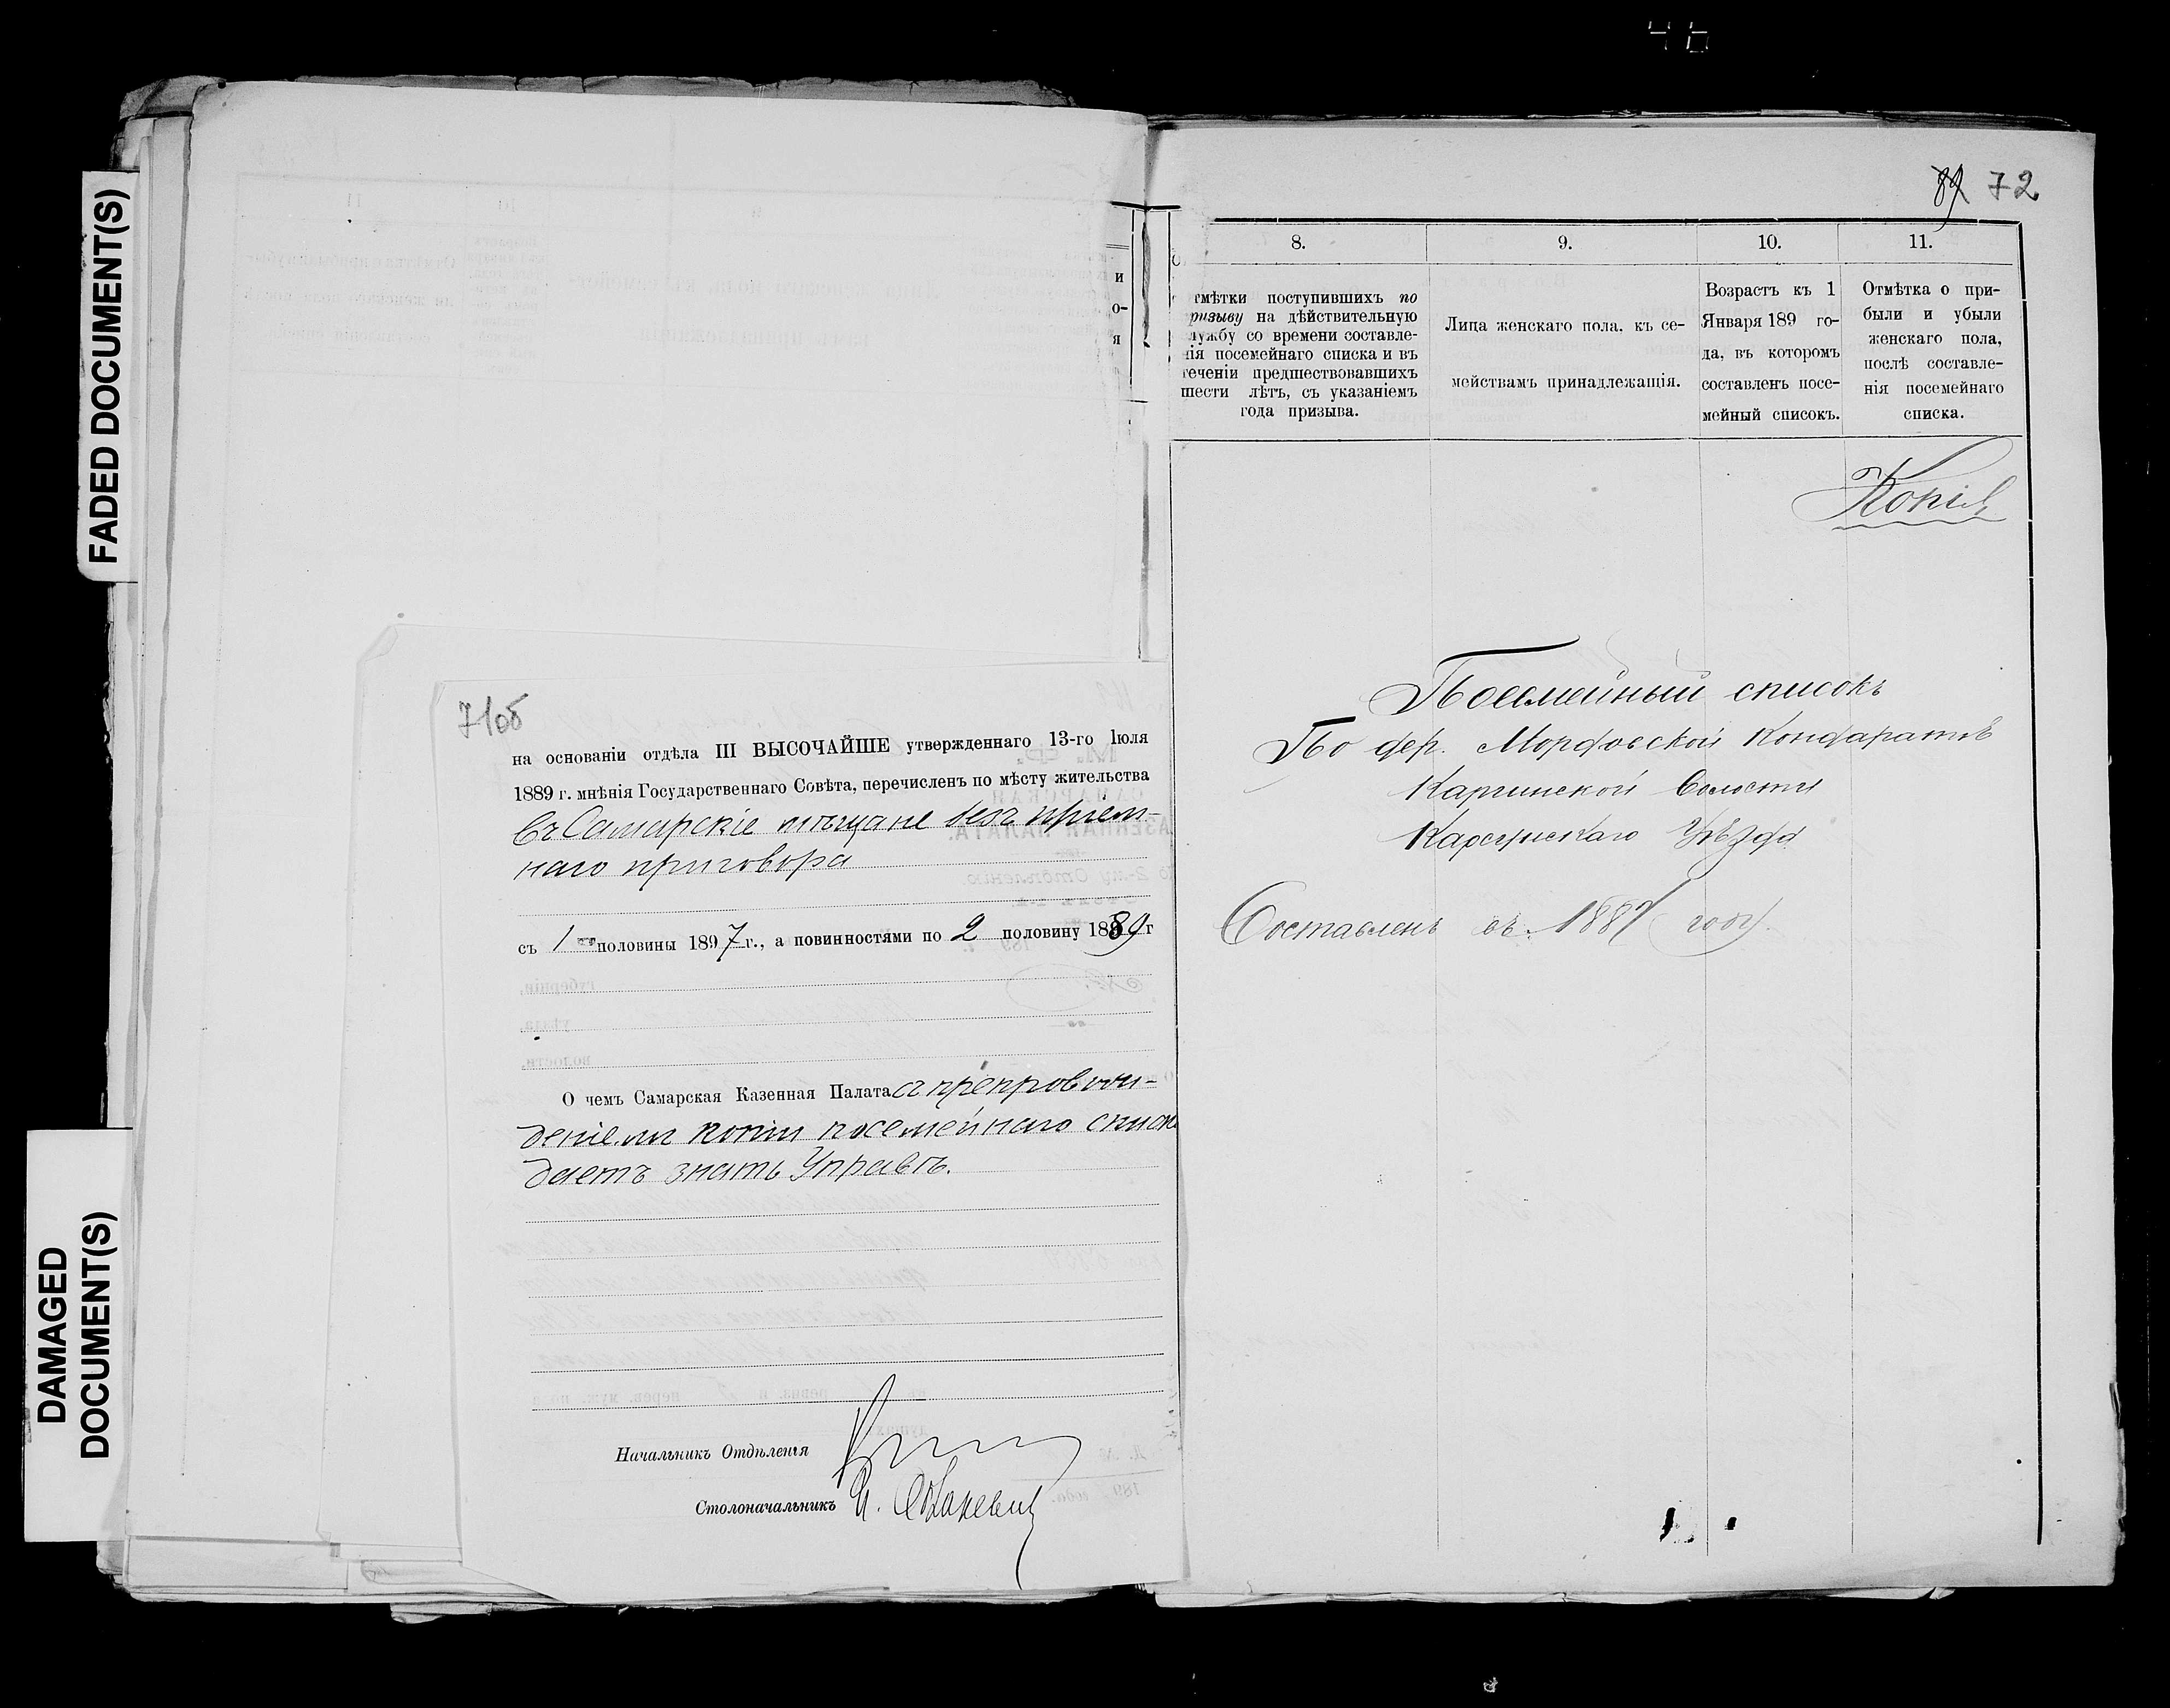 46
FADED DOCUMENT(S)
DAMAGED
DOCUMENT(S)
71об
на основаніи отдѣла III ВЫСОЧАЙШЕ утвержденнаго 13-го Іюля
1889 г. мнѣнія Государственнаго Совѣта, перечисленъ по мѣсту жительства
въ Самарскіе мѣщане безъ пріем-
наго приговора
съ 1 половины 1897 г., а повинностями по 2 половину 1889 г
О чемъ Самарская Казенная Палата съ препровож-
деніемъ копіи посемейнаго списк
даетъ знать Управѣ.
Начальникъ Отдѣленія
Столоначальникъ
и
о-
я
89 72
8.
мѣтки поступившихъ по
ризыву на дѣйствительную
лужбу со времени составле-
нія посемейнаго списка и въ
теченіи предшествовавшихъ
шести лѣтъ, съ указаніемъ
года призыва.
9.
Лица женскаго пола, къ се-
мействамъ принадлежащія.
10.
Возрастъ къ 1
Января 189 го-
да, въ которомъ
составленъ посе-
мейный списокъ.
11.
Отмѣтка о при-
были и убыли
женскаго пола,
послѣ составле-
нія посемейнаго
списка.
Копія
Посемейный списокъ
По дер. Мордовской Кондаратѣ
Каргинской Волости
Карсунскаго Уѣзда
Составленъ въ 1887 году.